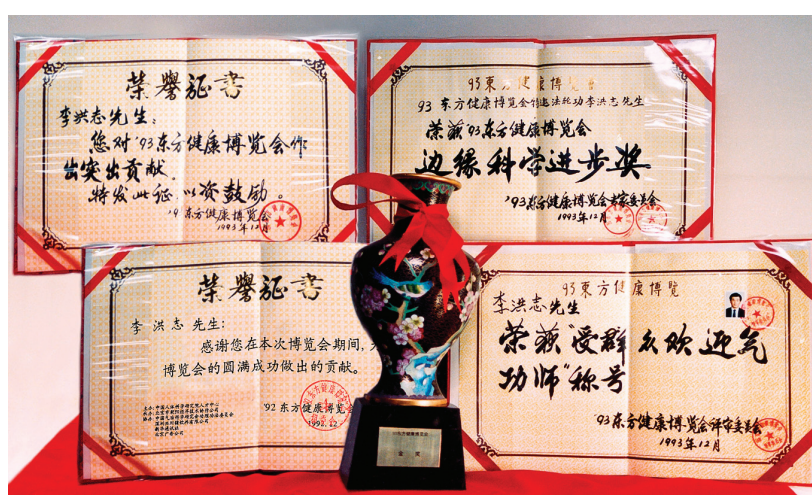 荣誉证书
李洪志先生：
您对'93东方健康博览会作
出突出贡献，
特发此证 以资鼓励。
'93东方健康博览会
1993年12月
93東方健康博览会
93东方健康博览会特邀法轮功李洪志先生
荣获'93东方健康博览会
边缘科学进步奖
'93东方健康博览会专家委员会
1993年12月
荣誉证书
李洪志 先生：
感谢您在本次博览会期间，为
博览会的圆满成功做出的贡献。
'92东方健康博览会
1992.12
93東方健康博览
李洪志先生
荣获“受群众欢迎气
功师”称号
'93东方健康博览会评审委员会
1993年12月
93东方健康博览会
金奖